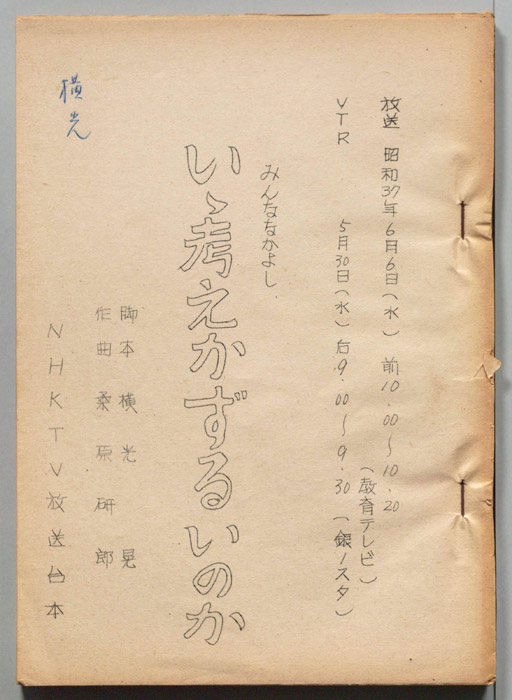 放送 昭和37年6月6日(水) 前10.00〜10.20
(教育テレビ)
VTR 5月30日(水) 后9.00〜9.30 (銀ノスタ)
みんななかよし
いゝ考えかずるいのか
脚本 横光 晃
作曲 桑原研郎
NHKTV放送台本
横光